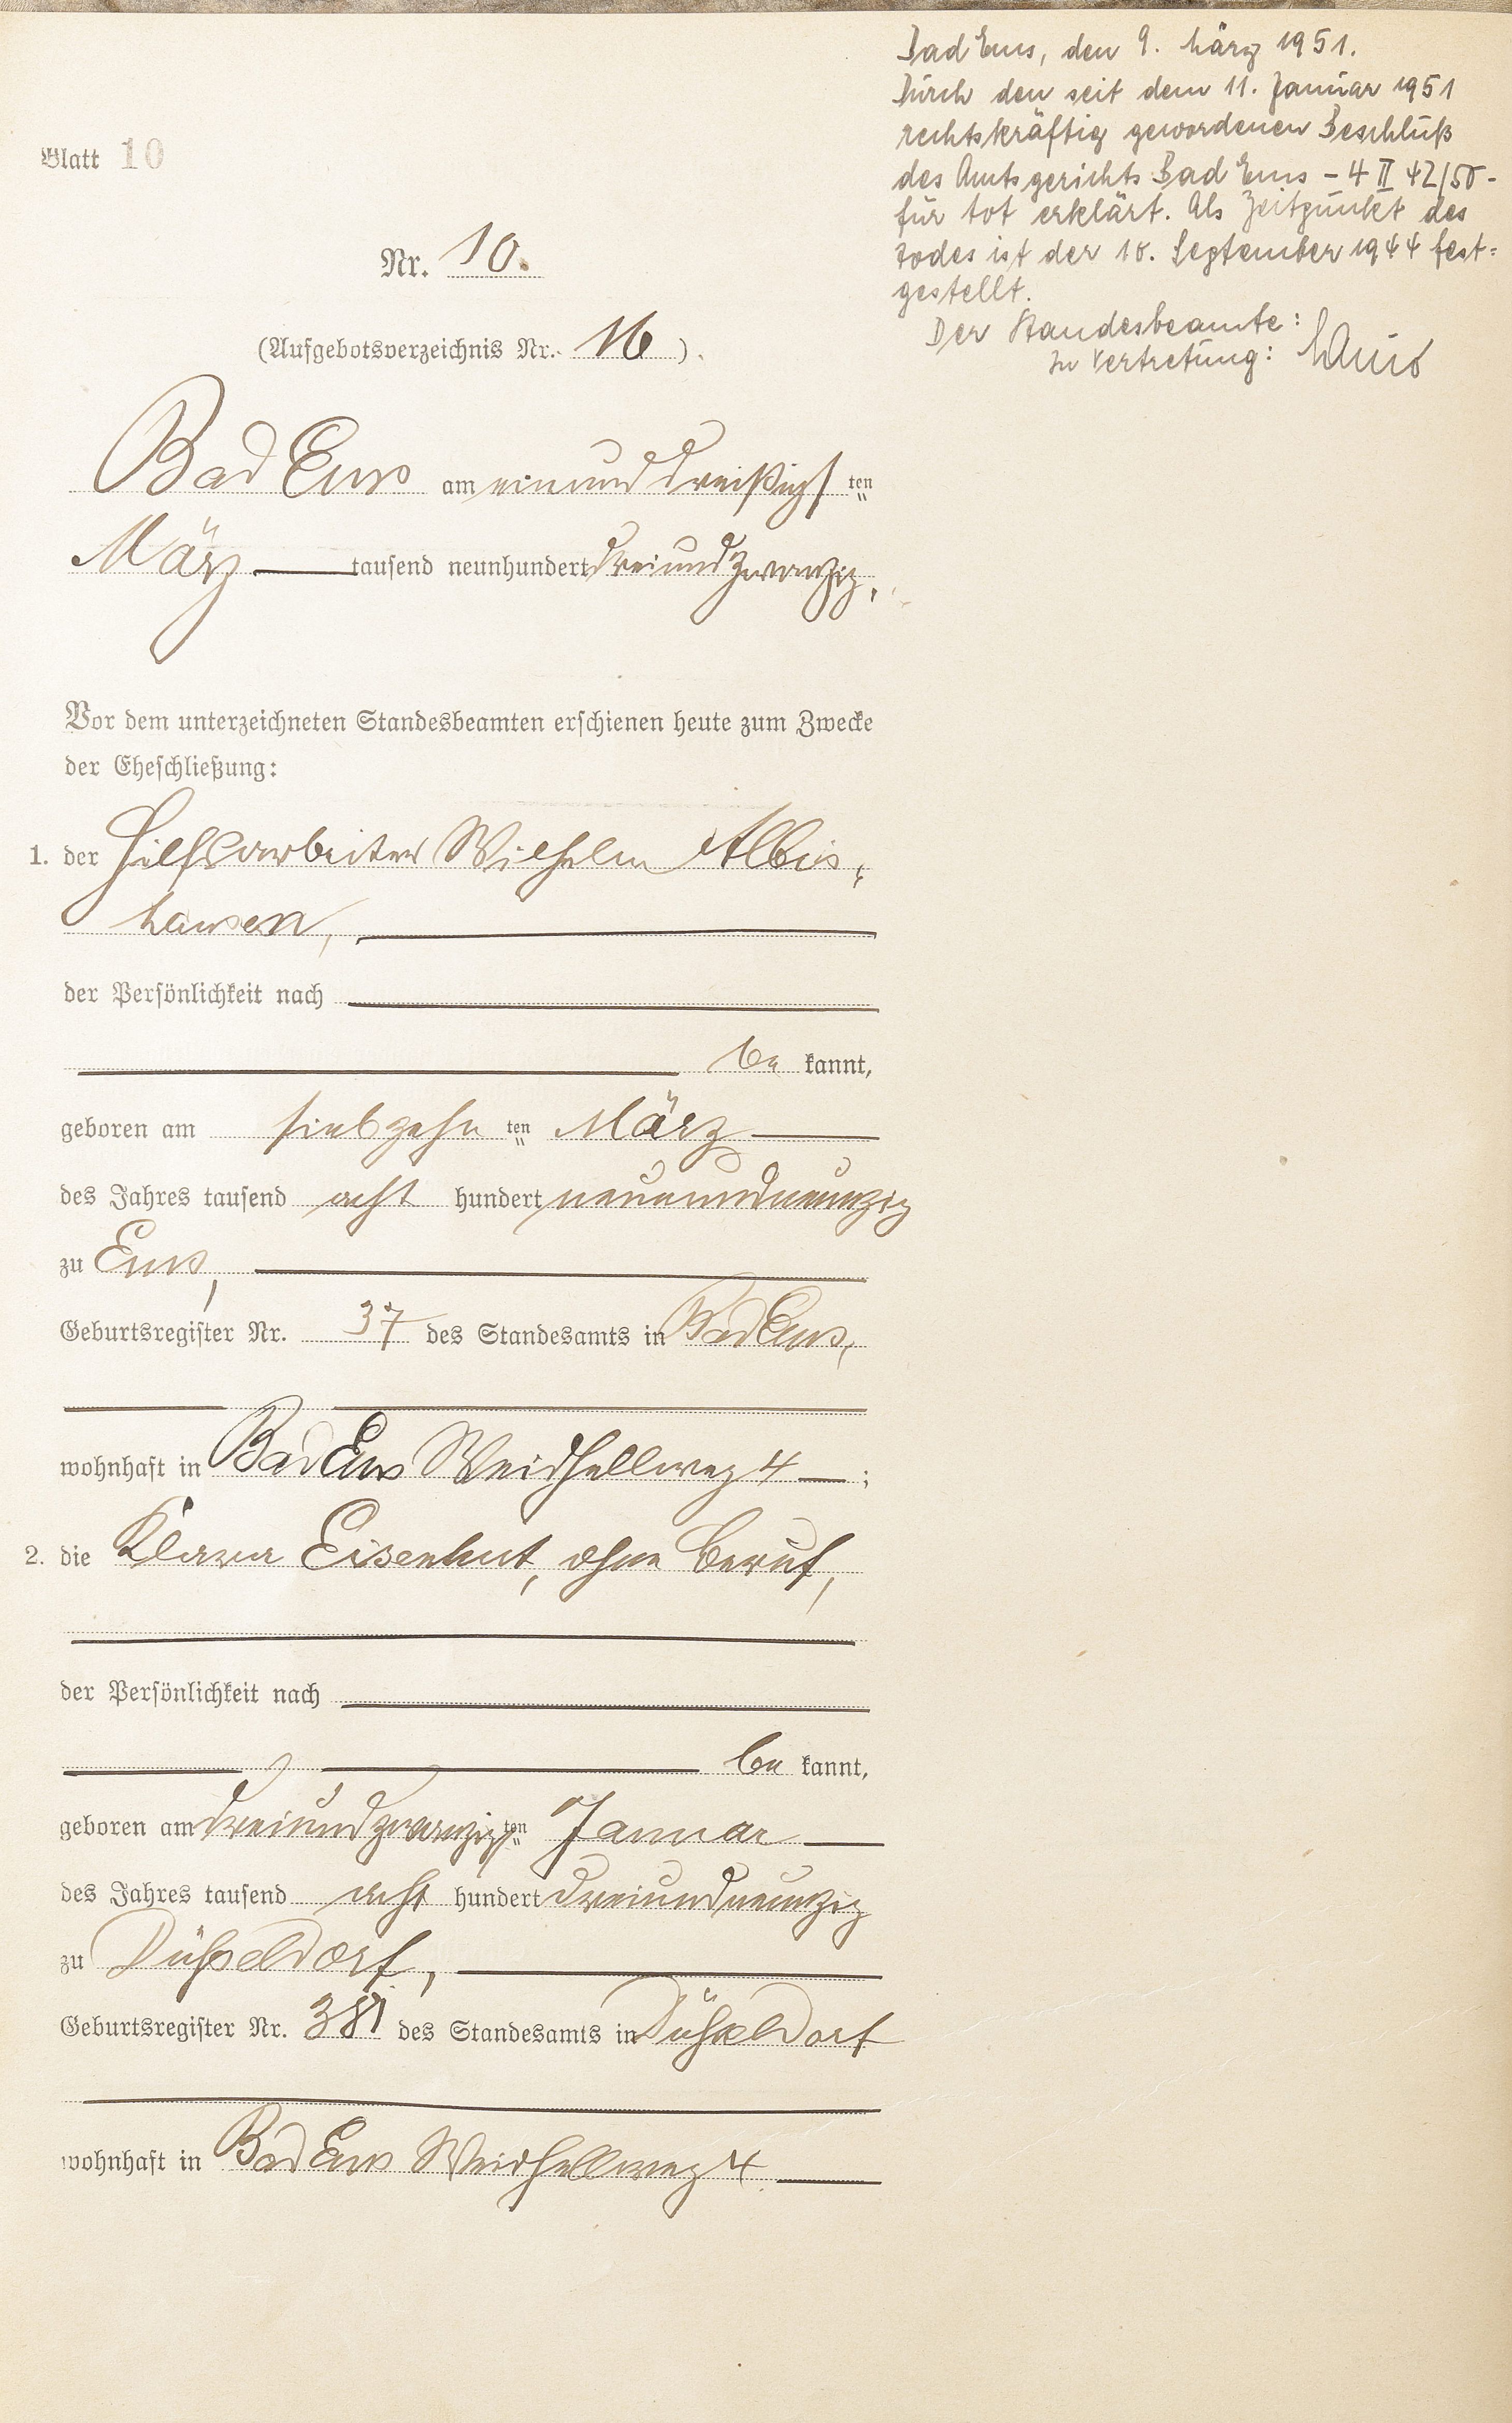 Bad Ems, den 9. März 1951.
Durch den seit dem 11. Januar 1951
rechtskräftig gewordenen Beschluß
des Amtsgerichts Bad Ems - 4 II 42/50 -
für tot erklärt. Als Zeitpunkt des
Todes ist der 10. September 1944 fest=
gestellt.
Der Standesbeamte:
In Vertretung:
Blatt 10
Nr. 10.
(Aufgebotsverzeichnis Nr. 16).
Bad Ems am einunddreißigsten
März tausend neunhundert dreiundzwanzig.
Vor dem unterzeichneten Standesbeamten erschienen heute zum Zwecke
der Eheschließung:
1. der Hilfsarbeiter Wilhelm Albis=
hausen,
der Persönlichkeit nach
be kannt,
geboren am siebzehn ten März
des Jahres tausend acht hundert neunundneunzig
zu Ems,
Geburtsregister Nr. 37 des Standesamts in Bad Ems,
wohnhaft in Bad Ems Weidhellweg 4 ;
2. die Klara Eisenhut, ohne Beruf,
der Persönlichkeit nach
be kannt,
geboren am dreiundzwanzigsten Januar
des Jahres tausend acht hundert dreiundneunzig
zu Düsseldorf,
Geburtsregister Nr. 381 des Standesamts in Düsseldorf
wohnhaft in Bad Ems Weidhellweg 4